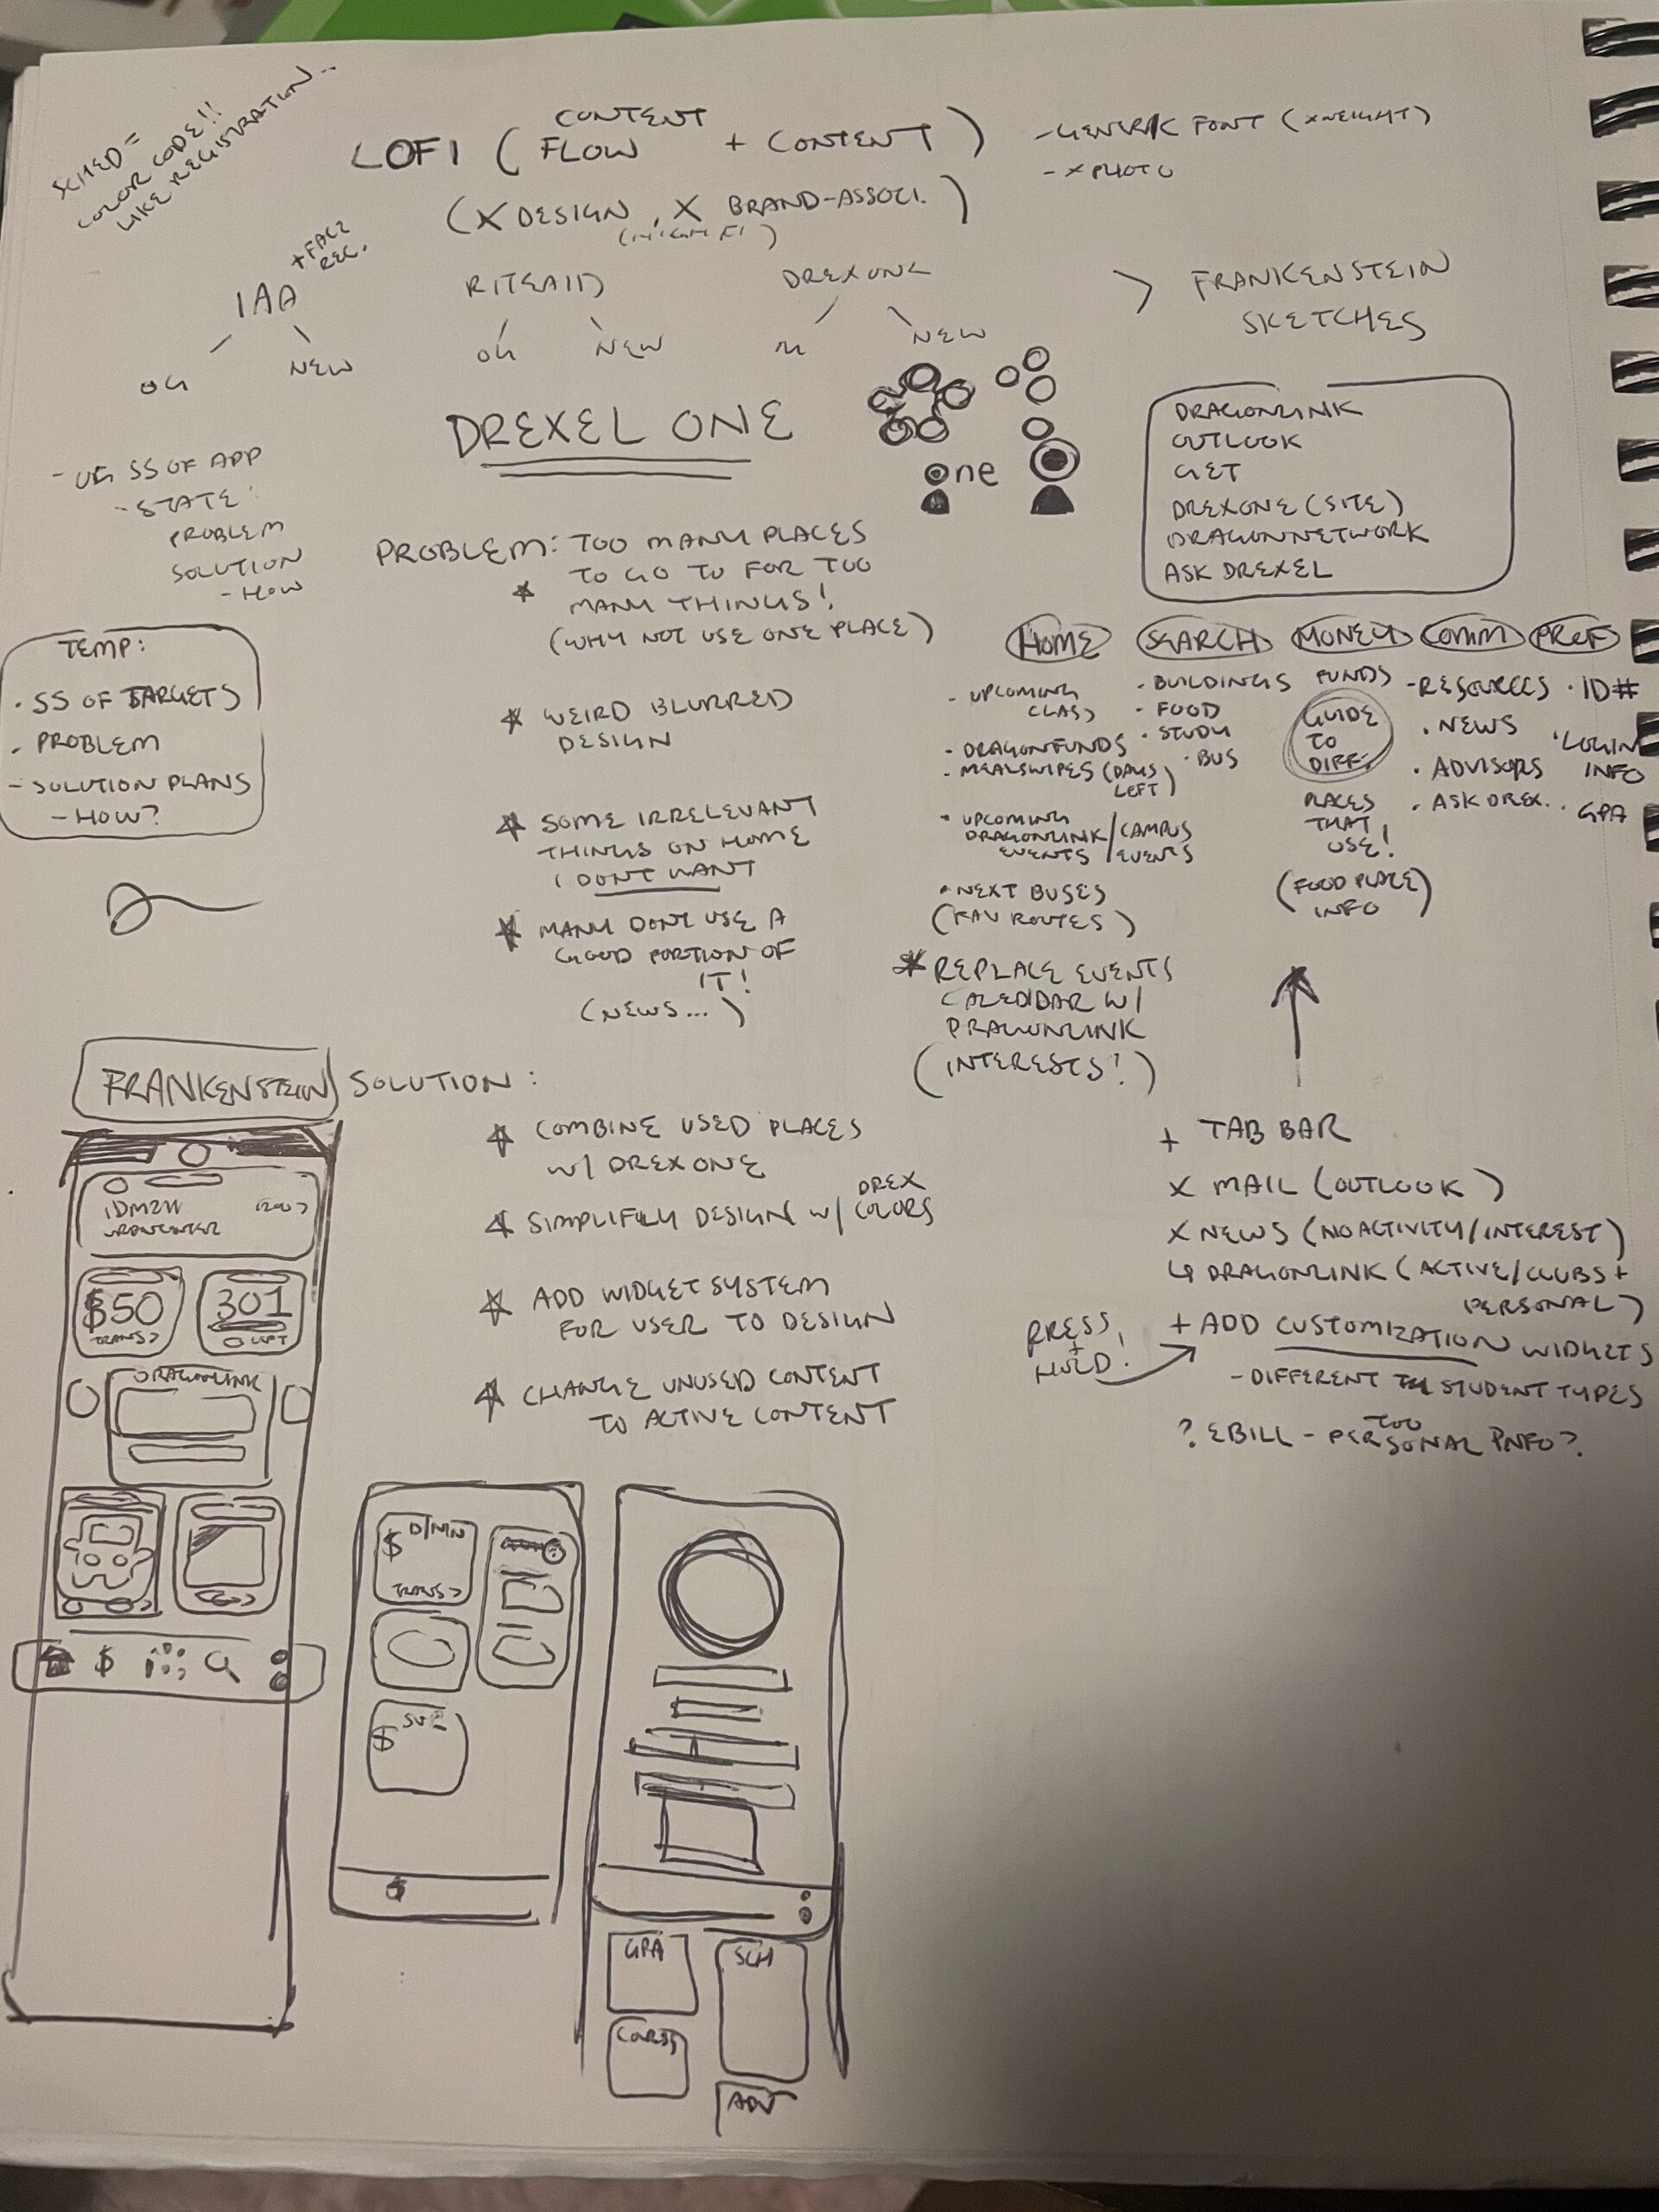 SCHED =
COLOR CODE!!
LIKE REGISTRATION...
LOFI ( CONTENT FLOW + CONTENT )
(X DESIGN, X BRAND-ASSOCI.)
(HIGH FI)
- GENERIC FONT (X WEIGHT)
- X PHOTO
IAA + FACE REC.
OG NEW
RITEAID
OG NEW
DREXONE
NEW
> FRANKENSTEIN
SKETCHES
DREXEL ONE
one
DRAGONLINK
OUTLOOK
GET
DREXONE (SITE)
DRAGONNETWORK
ASK DREXEL
- OG SS OF APP
- STATE:
PROBLEM
SOLUTION
- HOW
TEMP:
· SS OF TARGETS
· PROBLEM
- SOLUTION PLANS
- HOW?
PROBLEM: TOO MANY PLACES
TO GO TO FOR TOO
MANY THINGS!
(WHY NOT USE ONE PLACE)
WEIRD BLURRED
DESIGN
SOME IRRELEVANT
THINGS ON HOME
I DONT WANT
MANY DONT USE A
GOOD PORTION OF
IT!
(NEWS...)
HOME
- UPCOMING
CLASS
- DRAGONFUNDS
- MEALSWIPES (DAYS
LEFT)
· UPCOMING
DRAGONLINK/CAMPUS
EVENTS / EVENTS
· NEXT BUSES
(FAV ROUTES)
REPLACE EVENTS
CALEDIDAR W/
DRAGONLINK
(INTERESTS?)
SEARCH
· BUILDINGS
· FOOD
· STUDY
· BUS
MONEY
FUNDS
GUIDE
TO
DIFF.
PLACES
THAT
USE!
(FOOD PLACE)
INFO
COMM
- RESOURCES
· NEWS
· ADVISORS
· ASK DREX..
PREF
· ID#
· LOGIN
INFO
· GPA
FRANKENSTEIN SOLUTION:
COMBINE USED PLACES
W/ DREXONE
SIMPLIFILY DESIGN W/ DREX COLORS
ADD WIDGET SYSTEM
FOR USER TO DESIGN
CHANGE UNUSED CONTENT
TO ACTIVE CONTENT
+ TAB BAR
X MAIL (OUTLOOK)
X NEWS (NO ACTIVITY/INTEREST)
↳ DRAGONLINK (ACTIVE/CLUBS +
PERSONAL)
PRESS
+
HOLD!
+ ADD CUSTOMIZATION WIDGETS
- DIFFERENT STUDENT TYPES
? EBILL - TOO PERSONAL INFO?
IDM211
$50
TRANS >
301
LEFT
DRAGONLINK
$
$ D/MN
TRANS >
$
GPA
SCH
ADV